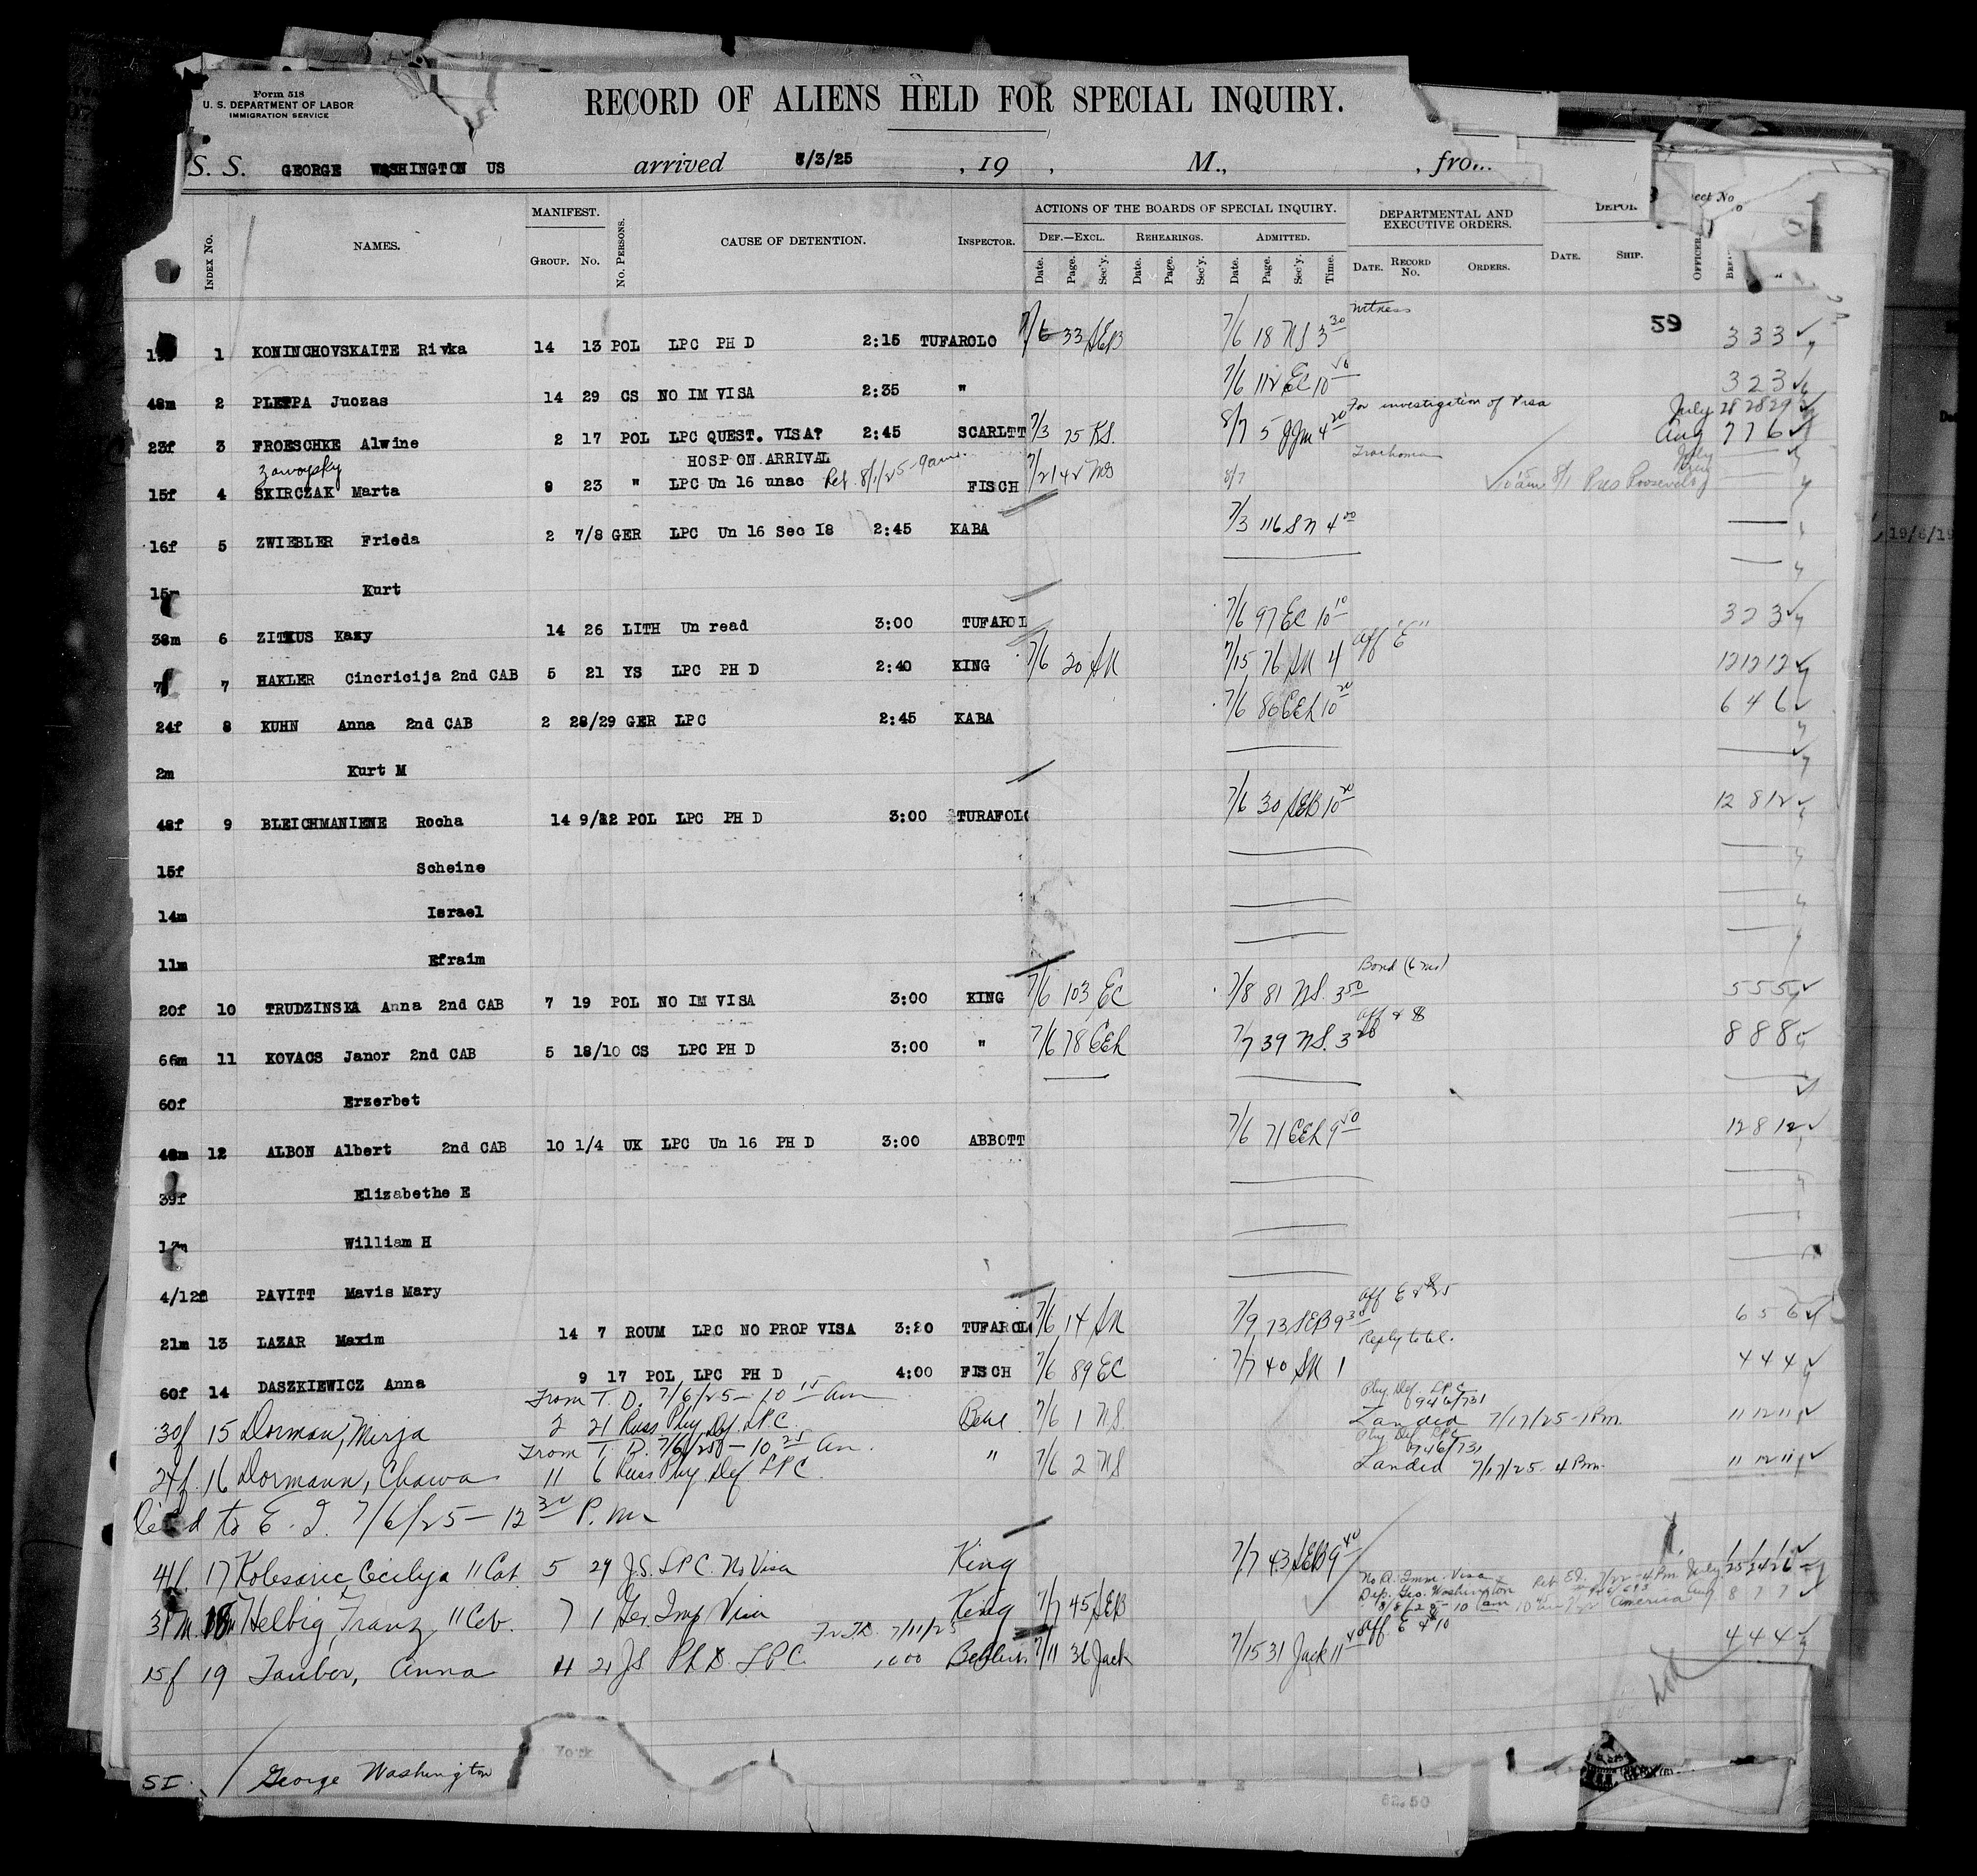 Form 518
U. S. DEPARTMENT OF LABOR
IMMIGRATION SERVICE
RECORD OF ALIENS HELD FOR SPECIAL INQUIRY.
S. S. GEORGE WASHINGTON US arrived 7/3/25 , 19 , M., , fro
INDEX No. NAMES. MANIFEST. GROUP. No. No. PERSONS. CAUSE OF DETENTION. INSPECTOR. ACTIONS OF THE BOARDS OF SPECIAL INQUIRY. DEPARTMENTAL AND EXECUTIVE ORDERS.
DEF.—EXCL. REHEARINGS. ADMITTED.
Date. Page. Sec'y. Date. Page. Sec'y. Date. Page. Sec'y. Time. DATE. RECORD No. ORDERS. DATE. SHIP. OFFICER
Witness
59
1 KONINCHOVSKAITE Rivka 14 13 POL LPC PH D 2:15 TUFAROLO 7/6 33 SEB 7/6 18 NS 3 30 3 3 3
48m 2 PLEPPA Juozas 14 29 CS NO IM VISA 2:35 " 7/6 112 EC 10 3 2 3
For investigation of Visa July 28 28 29
23f 3 FROESCHKE Alwine 2 17 POL LPC QUEST. VISA? 2:45 SCARLTT 7/3 75 KS. 8/7 5 JJM 4 20 Aug 7 7 6
HOSP ON ARRIVAL Trachoma
15f 4 SKIRCZAK Marta 8 23 " LPC Un 16 unac Ret. 8/1/25-9am. FISCH 7/21 42 NS 8/7 8/1 Pres Roosevelt
16f 5 ZWIEBLER Frieda 2 7/8 GER LPC Un 16 Sec 18 2:45 KABA 7/3 116 SN 4
15m Kurt
38m 6 ZITKUS Kazy 14 26 LITH Un read 3:00 TUFAROL 7/6 97 EC 10 10 3 2 3
Aff "E"
7 HAKLER Cincricija 2nd CAB 5 21 YS LPC PH D 2:40 KING 7/6 20 SN 7/15 76 SN 4 12 12 12
24f 8 KUHN Anna 2nd CAB 2 28/29 GER LPC 2:45 KABA 7/6 86 CEL 10 20 6 4 6
2m Kurt M
48f 9 BLEICHMANIENE Rocha 14 9/12 POL LPC PH D 3:00 TURAFOLO 7/6 30 SEB 10 20 12 8 12
15f Scheine
14m Israel
11m Efraim
Bond (6 mos)
20f 10 TRUDZINSKA Anna 2nd CAB 7 19 POL NO IM VISA 3:00 KING 7/6 103 EC 7/8 81 NS. 3 50 5 5 5
Aff & $
66m 11 KOVACS Janor 2nd CAB 5 18/10 CS LPC PH D 3:00 " 7/6 78 CEL 7/7 39 NS. 3 20 8 8 8
60f Erzerbet
48m 12 ALBON Albert 2nd CAB 10 1/4 UK LPC Un 16 PH D 3:00 ABBOTT 7/6 71 CEL 9 50 12 8 12
39f Elizabethe E
William H
4/12f PAVITT Mavis Mary
Aff E & $25
21m 13 LAZAR Maxim 14 7 ROUM LPC NO PROP VISA 3:20 TUFAROLO 7/6 14 SN 7/9 73 SEB 9 30 6 5 6
Reply to tel.
60f 14 DASZKIEWICZ Anna 9 17 POL LPC PH D 4:00 FISCH 7/6 89 EC 7/7 40 SN 1 4 4 4
From T. D. 7/6/25 - 10 15 am Phy. Def LPC
30f 15 Dorman, Mirja 2 21 Russ Phy Def. LPC. 7/6 1 NS. Landed 7/17/25-1Pm. 11 12 11
From T. D. 7/6/25 - 10 25 am. Phy Def LPC
24f. 16 Dormann, Chawa 11 6 Russ Phy Def LPC. " 7/6 2 NS Landed 7/17/25 - 4 Pm. 11 12 11
to E. I. 7/6/25 - 12 30 P. m
41f. 17 Kolesaric, Cecilija II Cab 5 29 J.S. LPC. No Visa King 7/7 43 SEB 9 40
No Q. Imm. Visa Ret. E.I. 7/22-4Pm July 25 24 26
Dep. Geo. Washington America Aug 8 7 7
31 m. 18 Helbig, Franz, II Cab. 7 1 Ger. Imp Visa King 7/7 45 SEB
Fr T.D. 7/11/25 Aff. E & $10
15f 19 Tauber, Anna 4 21 J.S. Ph D. LPC. 10 00 7/11 36 Jack 7/15 31 Jack 11 4 4 4
York
S I. / George Washington
62.50